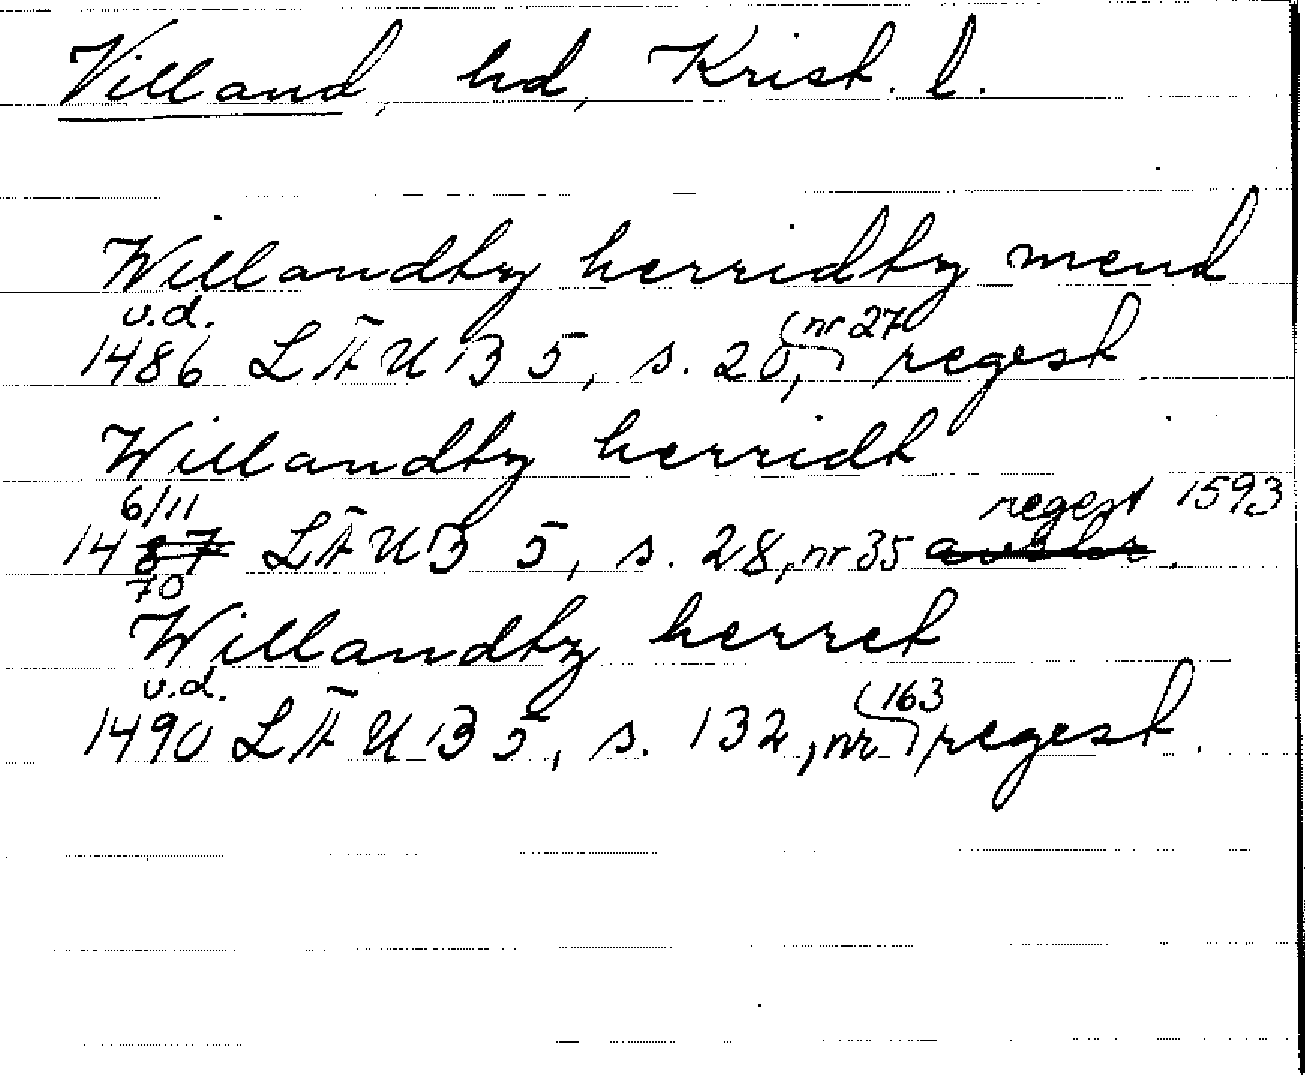 Villand, hd, Krist. l.
Willandtz herridtz mend
u.d.
1486 LÄUB 5, s. 20, (nr 27) regest
Willandtz herridt
6/11 regest 1593
1487 LÄUB 5, s. 28, nr 35
70
Willandtz herret
u.d.
1490 LÄUB 5, s. 132, nr (163) regest.